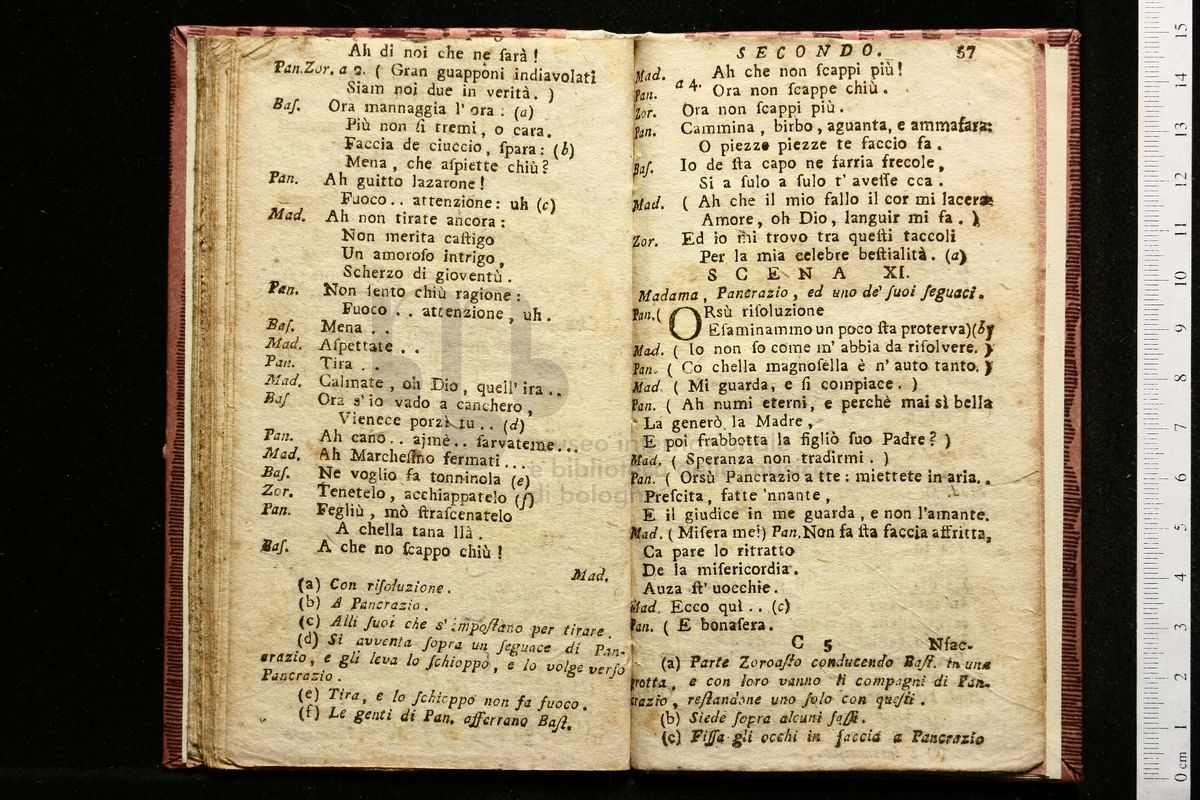 Ah di noi che ne ſarà !
Pan.Zor. a 2. ( Gran guapponi indiavolati
Siam noi due in verità. )
Baſ. Ora mannaggia l' ora : (a)
Più non ſi tremi, o cara.
Faccia de ciuccio, ſpara : (b)
Mena, che aſpiette chiù ?
Pan. Ah guitto lazarone !
Fuoco . . attenzione : uh (c)
Mad. Ah non tirate ancora :
Non merita caſtigo
Un amoroſo intrigo,
Scherzo di gioventù .
Pan. Non ſento chiù ragione :
Fuoco . . attenzione, uh.
Baſ. Mena . .
Mad. Aſpettate . .
Pan. Tira . .
Mad. Calmate, oh Dio, quell' ira . .
Baſ Ora s' io vado a canchero,
Vienece porzì tu . . (d)
Pan. Ah cano . . ajmè . . ſarvateme . . .
Mad. Ah Marcheſino fermati . . .
Baſ. Ne voglio fa tonninola (e)
Zor. Tenetelo, acchiappatelo (f)
Pan. Fegliù, mò ſtraſcenatelo
A chella tana llà .
Baſ. A che no ſcappo chiù !
Mad.
(a) Con riſoluzione .
(b) A Pancrazio .
(c) Alli ſuoi che s' impoſtano per tirare .
(d) Si avventa ſopra un ſeguace di Pan-
crazio, e gli leva lo ſchioppo, e lo volge verſo
Pancrazio .
(e) Tira, e lo ſchioppo non fa fuoco .
(f) Le genti di Pan. afferrano Baſt.
SECONDO. 57
Mad. Ah che non ſcappi più !
Pan. a 4. Ora non ſcappe chiù .
Zor. Ora non ſcappi più .
Pan. Cammina, birbo, aguanta, e ammafara:
O piezze piezze te faccio fa .
Baſ. Io de ſta capo ne farria frecole,
Si a ſulo a ſulo t' aveſſe cca .
Mad. ( Ah che il mio fallo il cor mi lacera
Amore, oh Dio, languir mi fa . )
Zor. Ed io mi trovo tra queſti taccoli
Per la mia celebre beſtialità . (a)
SCENA XI.
Madama, Pancrazio, ed uno de' ſuoi ſeguaci.
Pan. ( ORsù riſoluzione
Eſaminammo un poco ſta proterva) (b)
Mad. ( Io non ſo come m' abbia da riſolvere. )
Pan. ( Co chella magnoſella è n' auto tanto. )
Mad. ( Mi guarda, e ſi compiace . )
Pan. ( Ah numi eterni, e perchè mai sì bella
La generò la Madre,
E poi frabbotta la figliò ſuo Padre ? )
Mad. ( Speranza non tradirmi . )
Pan. ( Orsù Pancrazio a tte : miettete in aria. .
Preſcita, fatte 'nnante,
E il giudice in me guarda, e non l'amante.
Mad. ( Miſera me!) Pan. Non fa ſta faccia affritta,
Ca pare lo ritratto
De la miſericordia .
Auza ſt' uocchie .
Mad. Ecco quì . . (c)
Pan. ( E bonaſera .
C 5 Nfac-
(a) Parte Zoroaſto conducendo Baſt. in una
grotta, e con loro vanno li compagni di Pan-
crazio, reſtandone uno ſolo con queſti .
(b) Siede ſopra alcuni ſaſſi.
(c) Fiſſa gli occhi in faccia a Pancrazio
museo internazionale
e biblioteca della musica
di bologna
0 cm 1 2 3 4 5 6 7 8 9 10 11 12 13 14 15